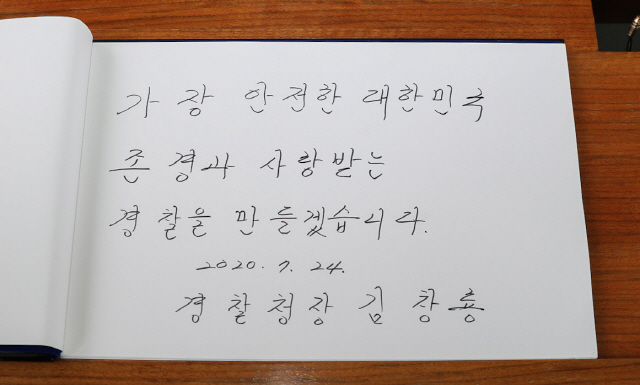 가장 안전한 대한민국
존경과 사랑받는
경찰을 만들겠습니다.
2020. 7. 24.
경찰청장 김창룡